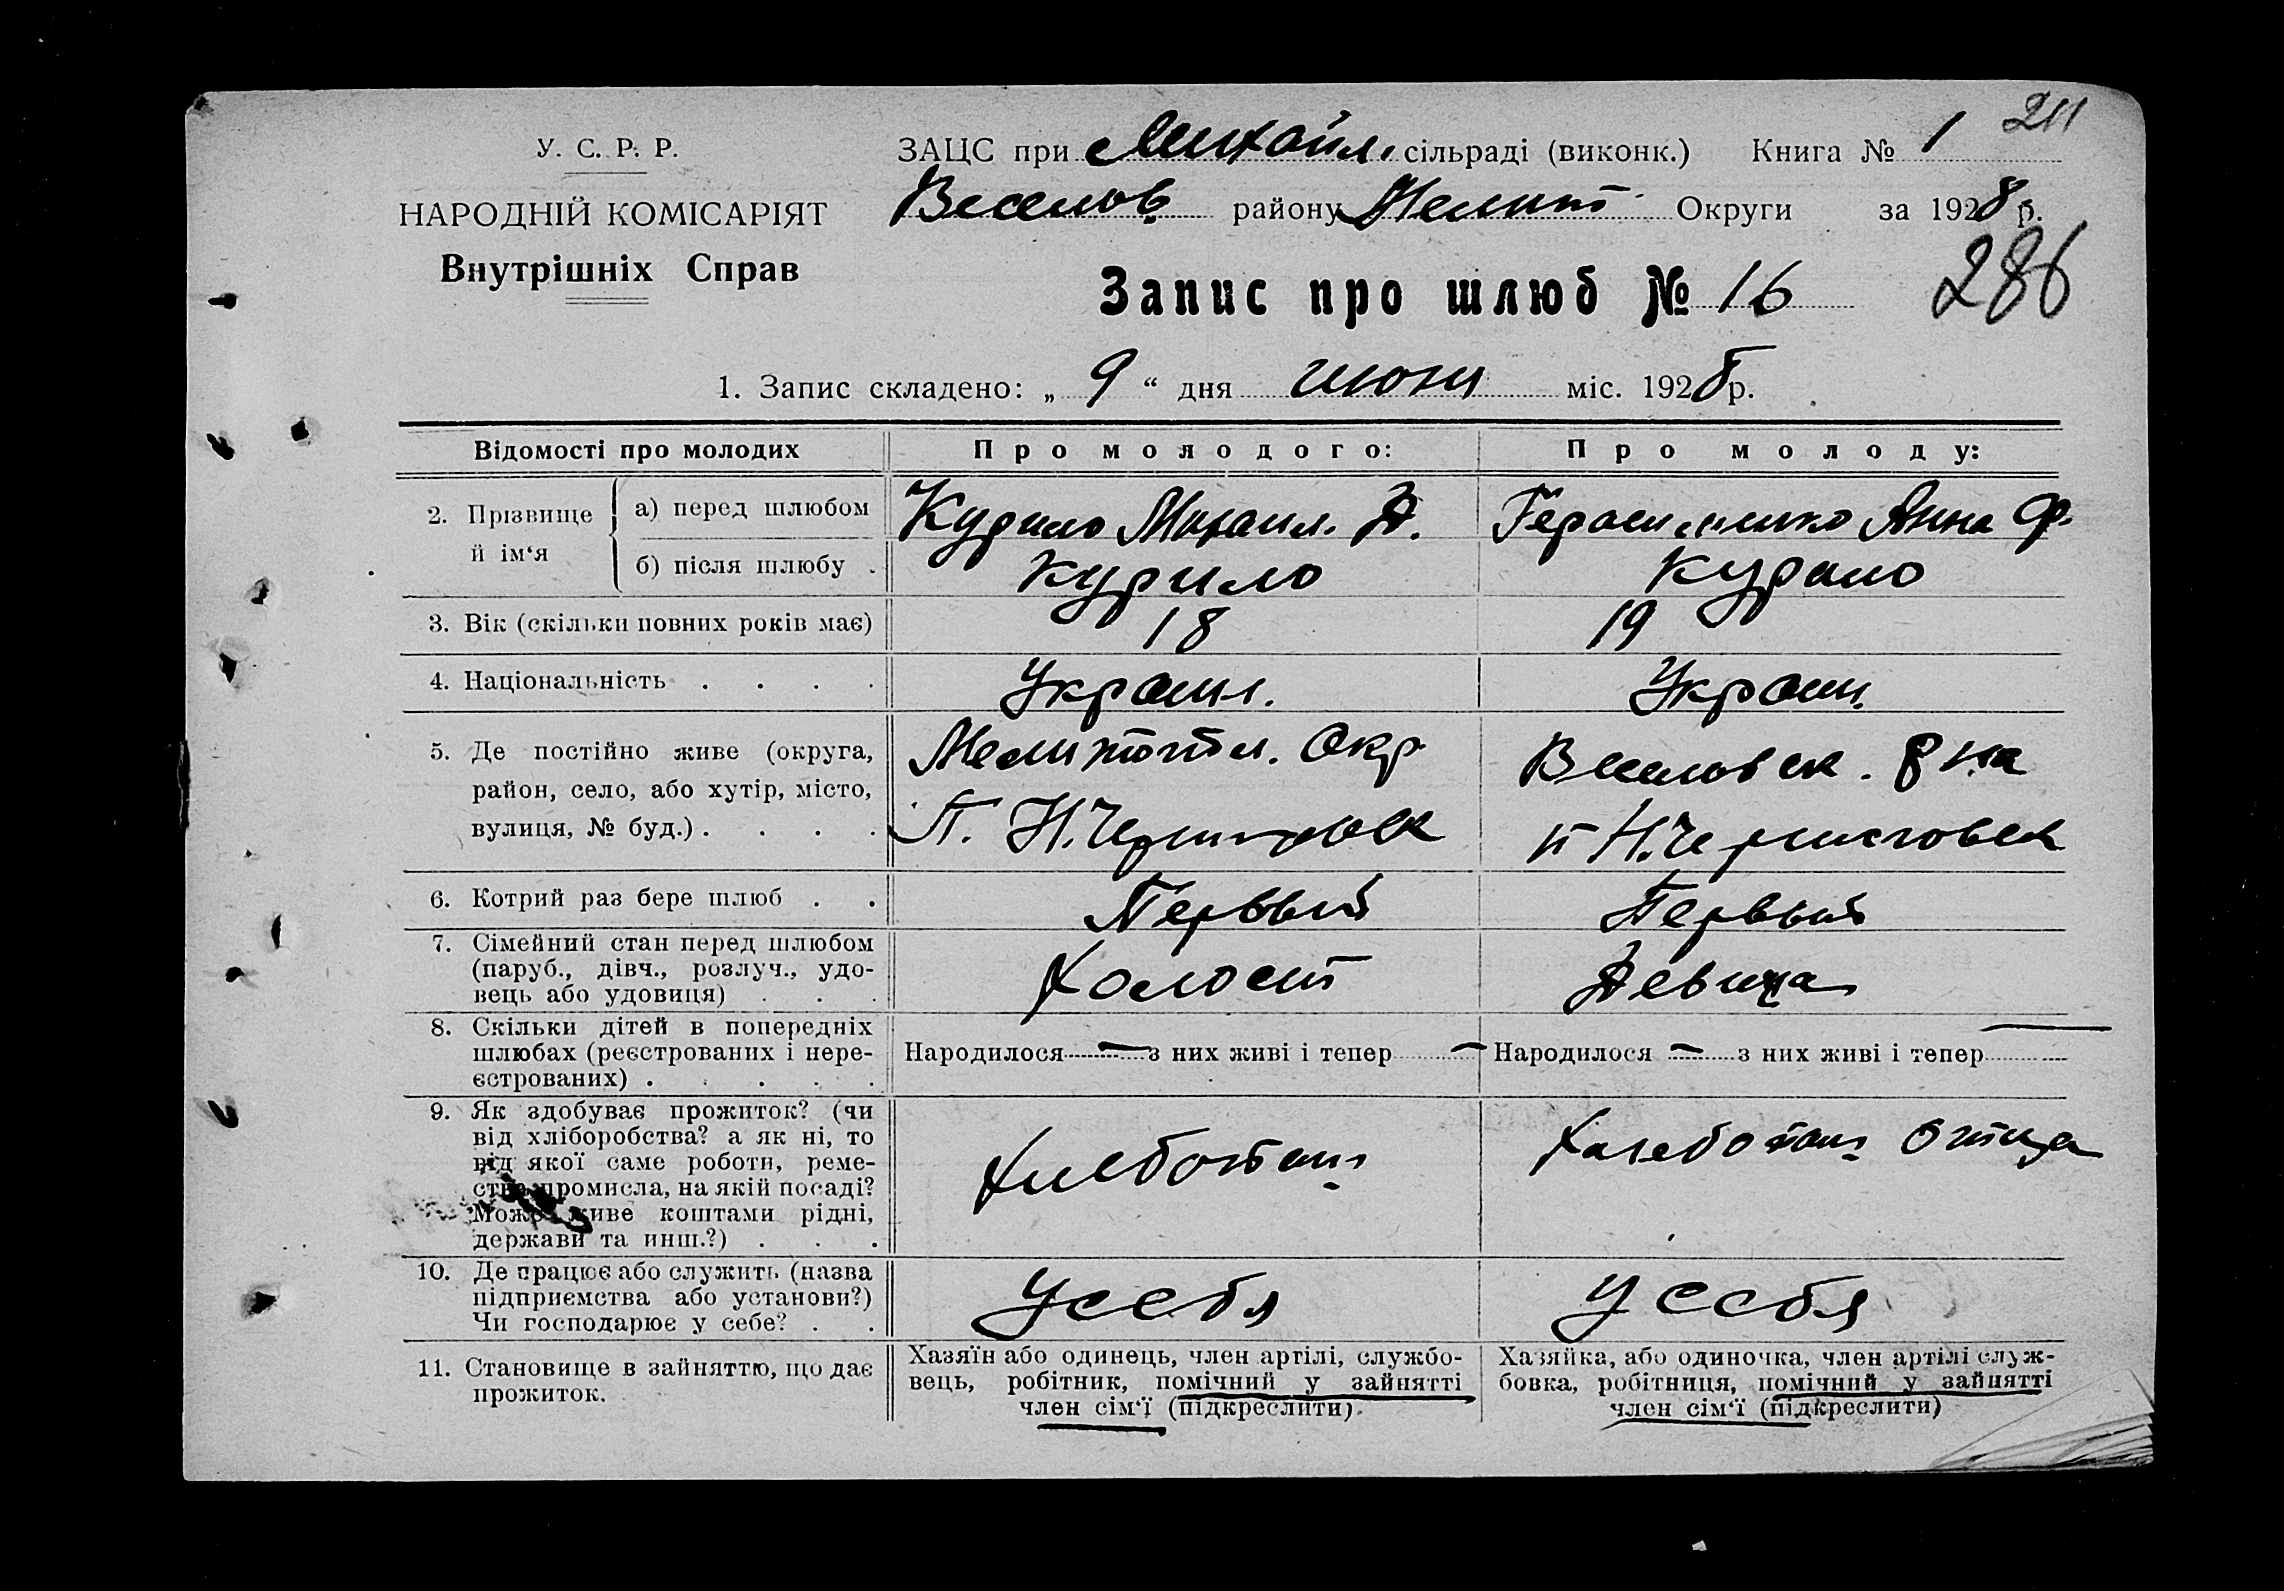 211
У. С. Р. Р.
ЗАЦС при Михайл. сільраді (виконк.) Книга № 1
НАРОДНІЙ КОМІСАРІЯТ
Веселов району Мелит. Округи за 1928 р.
Внутрішніх Справ
Запис про шлюб № 16
286
1. Запис складено: „ 9 “ дня июня міс. 1928 р.
Відомості про молодих
Про молодого:
Про молоду:
2. Прізвище й ім‘я
а) перед шлюбом
Курило Михаил. Д.
Герасименко Анна Ф.
б) після шлюбу .
Курило
Курило
3. Вік (скільки повних років має)
18
19
4. Національність . . . .
Украин.
Украин.
5. Де постійно живе (округа,
район, село, або хутір, місто,
вулиця, № буд.) . . . .
Мелитопол. Окр
П. Н.Черниговк
Веселовск. р на
п Н.Черниговка
6. Котрий раз бере шлюб . .
Первый
Первый
7. Сімейний стан перед шлюбом
(паруб., дівч., розлуч., удо-
вець або удовиця) . . .
Холост
Девица
8. Скільки дітей в попередніх
шлюбах (реєстрованих і нере-
єстрованих) . . . . .
Народилося — з них живі і тепер —
Народилося — з них живі і тепер —
9. Як здобуває прожиток? (чи
від хліборобства? а як ні, то
від якої саме роботи, реме-
ства промисла, на якій посаді?
Може живе коштами рідні,
держави та инш.?) . . .
Хлебопаш
Хлебопаш отца
10. Де працює або служить (назва
підприємства або установи?)
Чи господарює у себе? . .
У себя
У себя
11. Становище в зайняттю, що дає
прожиток.
Хазяїн або одинець, член артілі, службо-
вець, робітник, помічний у зайнятті
член сім‘ї (підкреслити).
Хазяйка, або одиночка, член артілі служ-
бовка, робітниця, помічний у зайнятті
член сім‘ї (підкреслити)